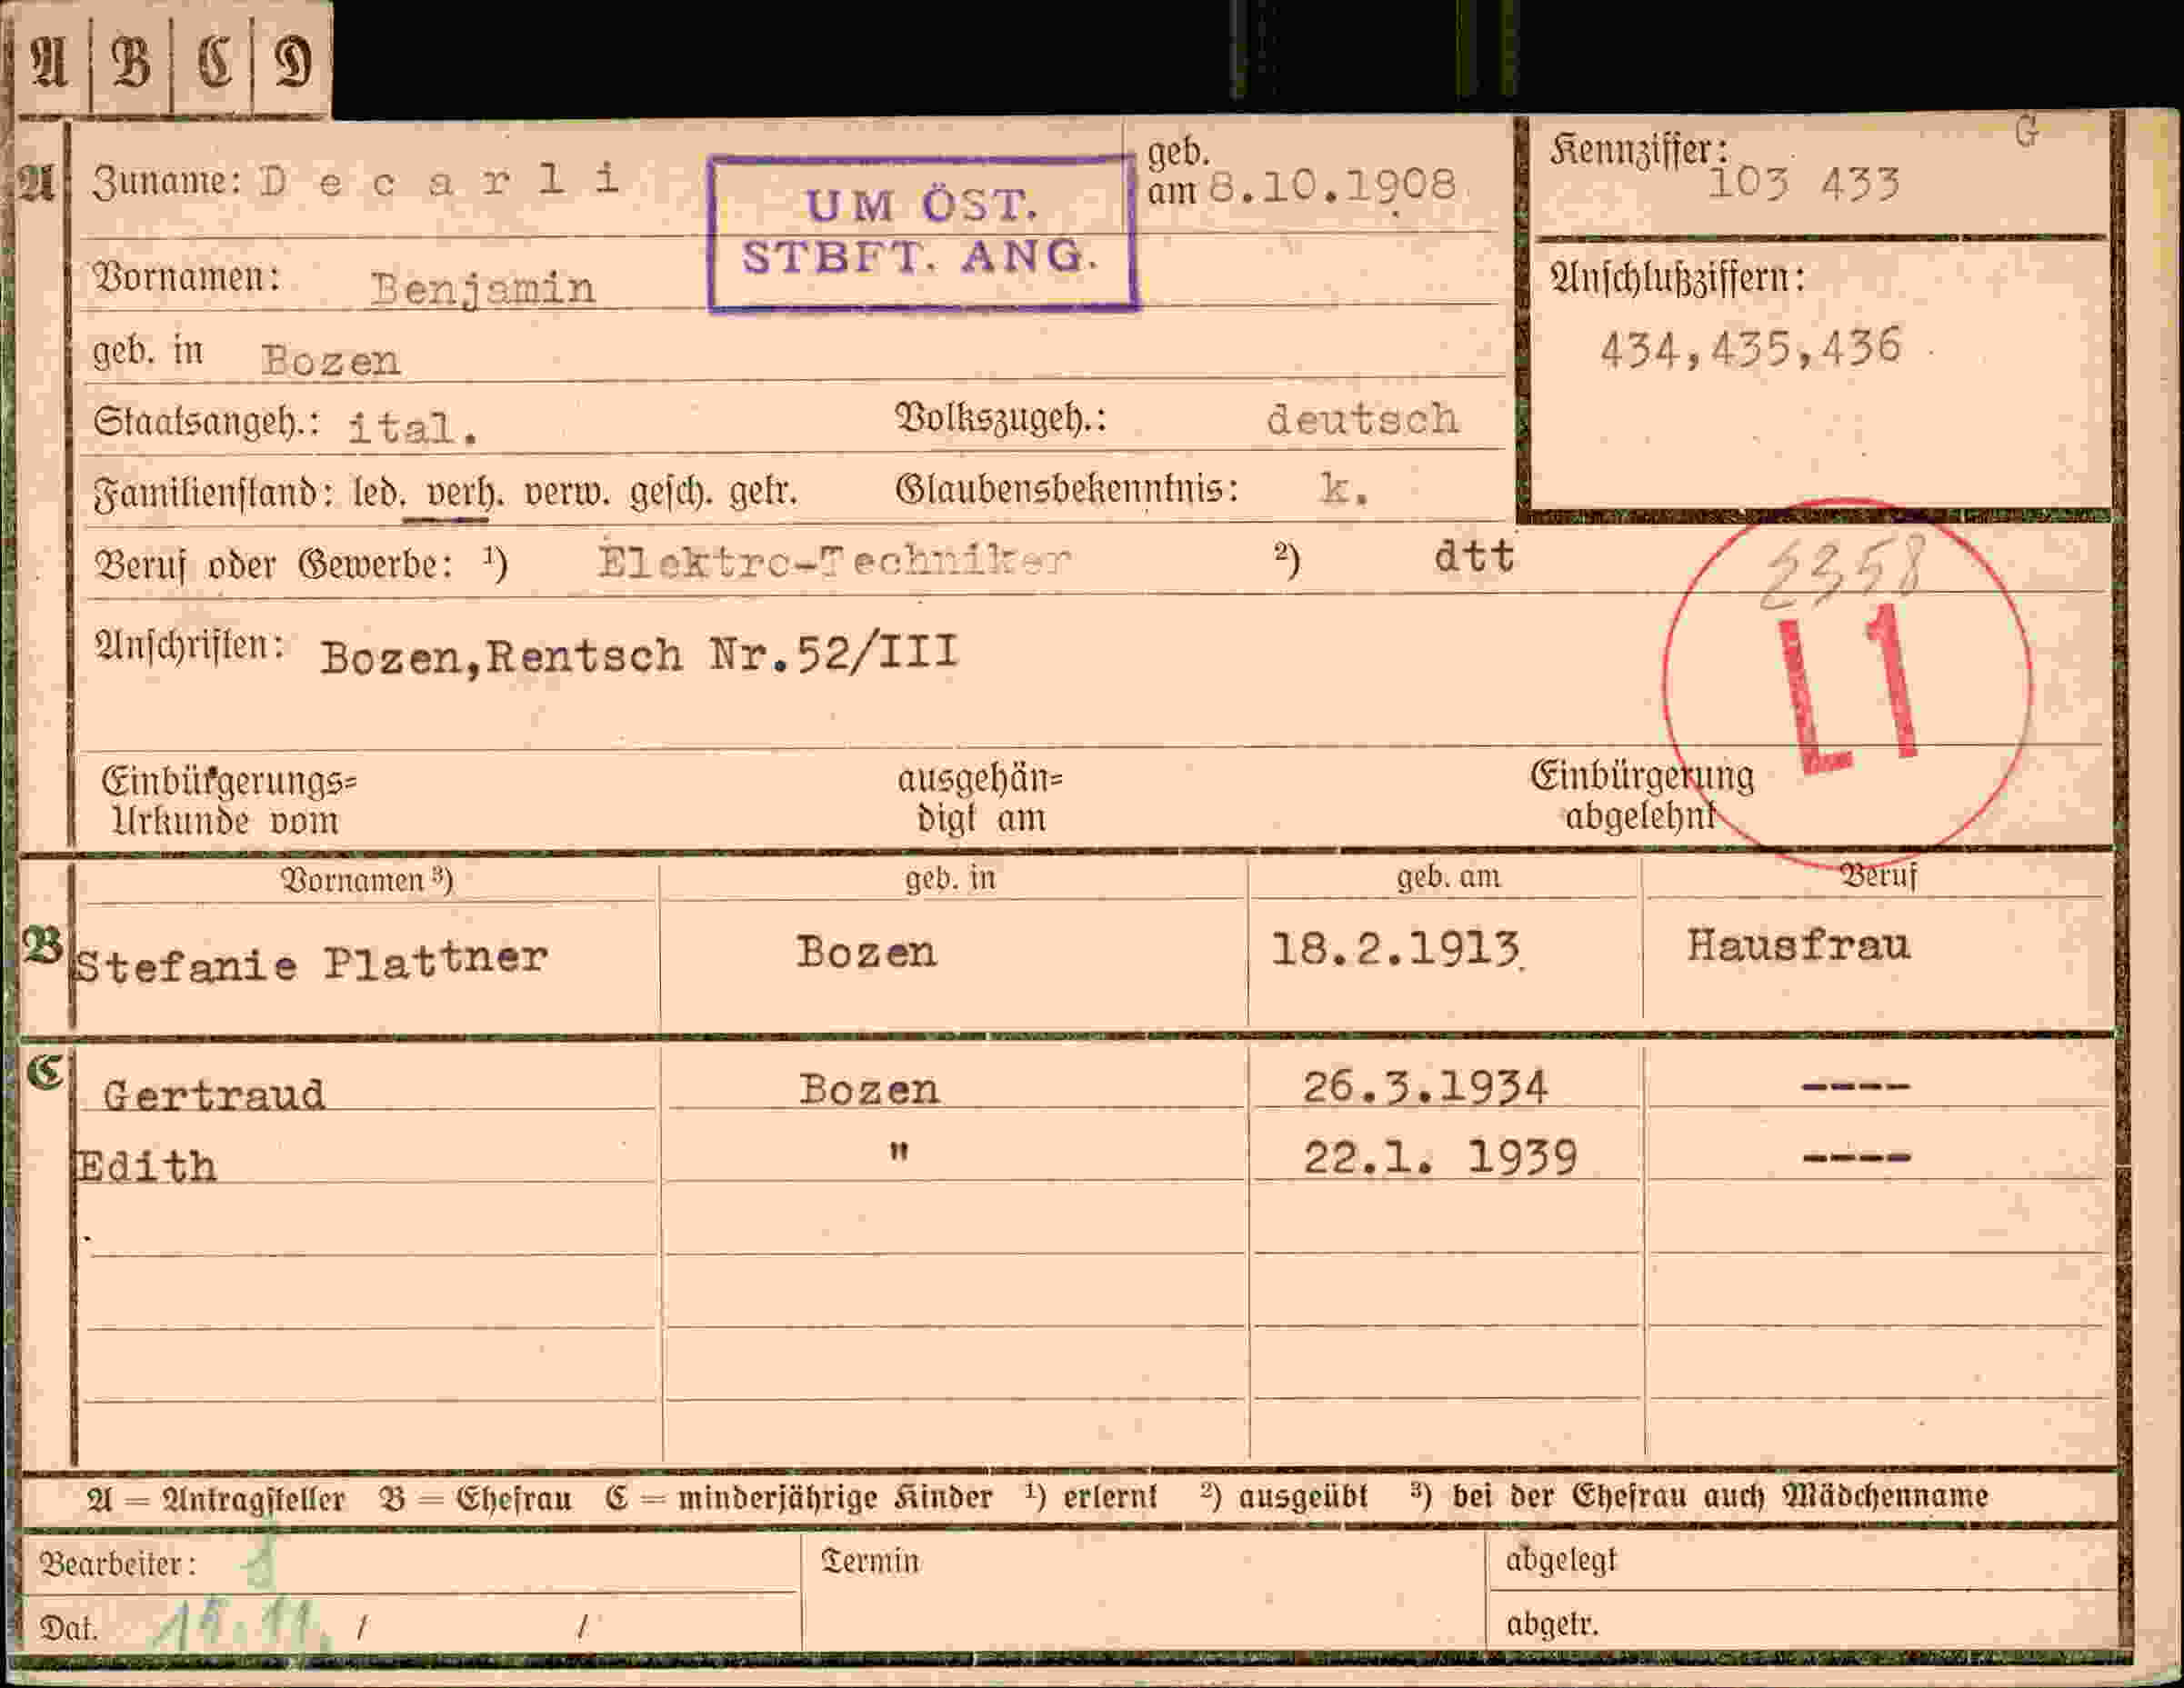 A B C D
G
A Zuname: Decarli geb. am 8.10.1908 Kennziffer: 103 433
UM ÖST.
STBFT. ANG.
Vornamen: Benjamin Anschlußziffern:
geb. in Bozen 434,435,436
Staatsangeh.: ital. Volkszugeh.: deutsch
Familienstand: led. verh. verw. gesch. getr. Glaubensbekenntnis: k.
Beruf oder Gewerbe: ¹) Elektro-Techniker ²) dtt
L1
Anschriften: Bozen,Rentsch Nr.52/III
Einbürgerungs= ausgehän= Einbürgerung
Urkunde vom digt am abgelehnt
Vornamen ³) geb. in geb. am Beruf
B Stefanie Plattner Bozen 18.2.1913 Hausfrau
C Gertraud Bozen 26.3.1934 ----
Edith " 22.1. 1939 ----
A = Antragsteller B = Ehefrau C = minderjährige Kinder ¹) erlernt ²) ausgeübt ³) bei der Ehefrau auch Mädchenname
Bearbeiter: Termin abgelegt
Dat. / / abgetr.